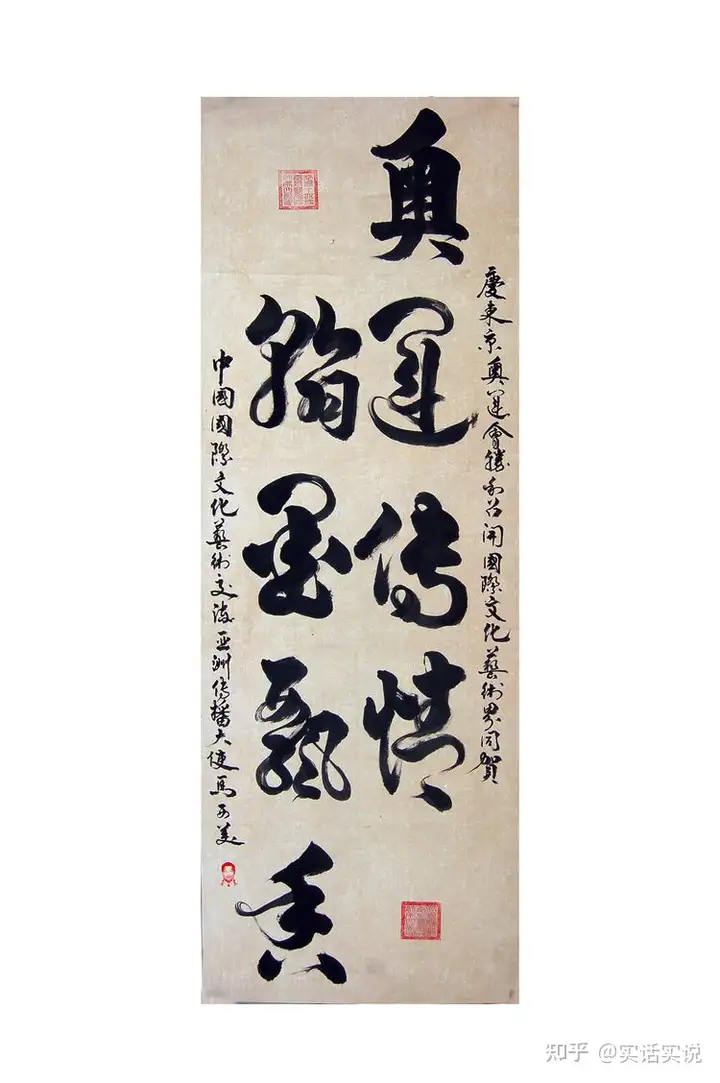 慶東京奥運會勝利召開國際文化藝術界同賀
奥運傳情
翰墨飄香
中國國際文化藝術交流亞洲傳播大使馬可美
知乎 @实话实说